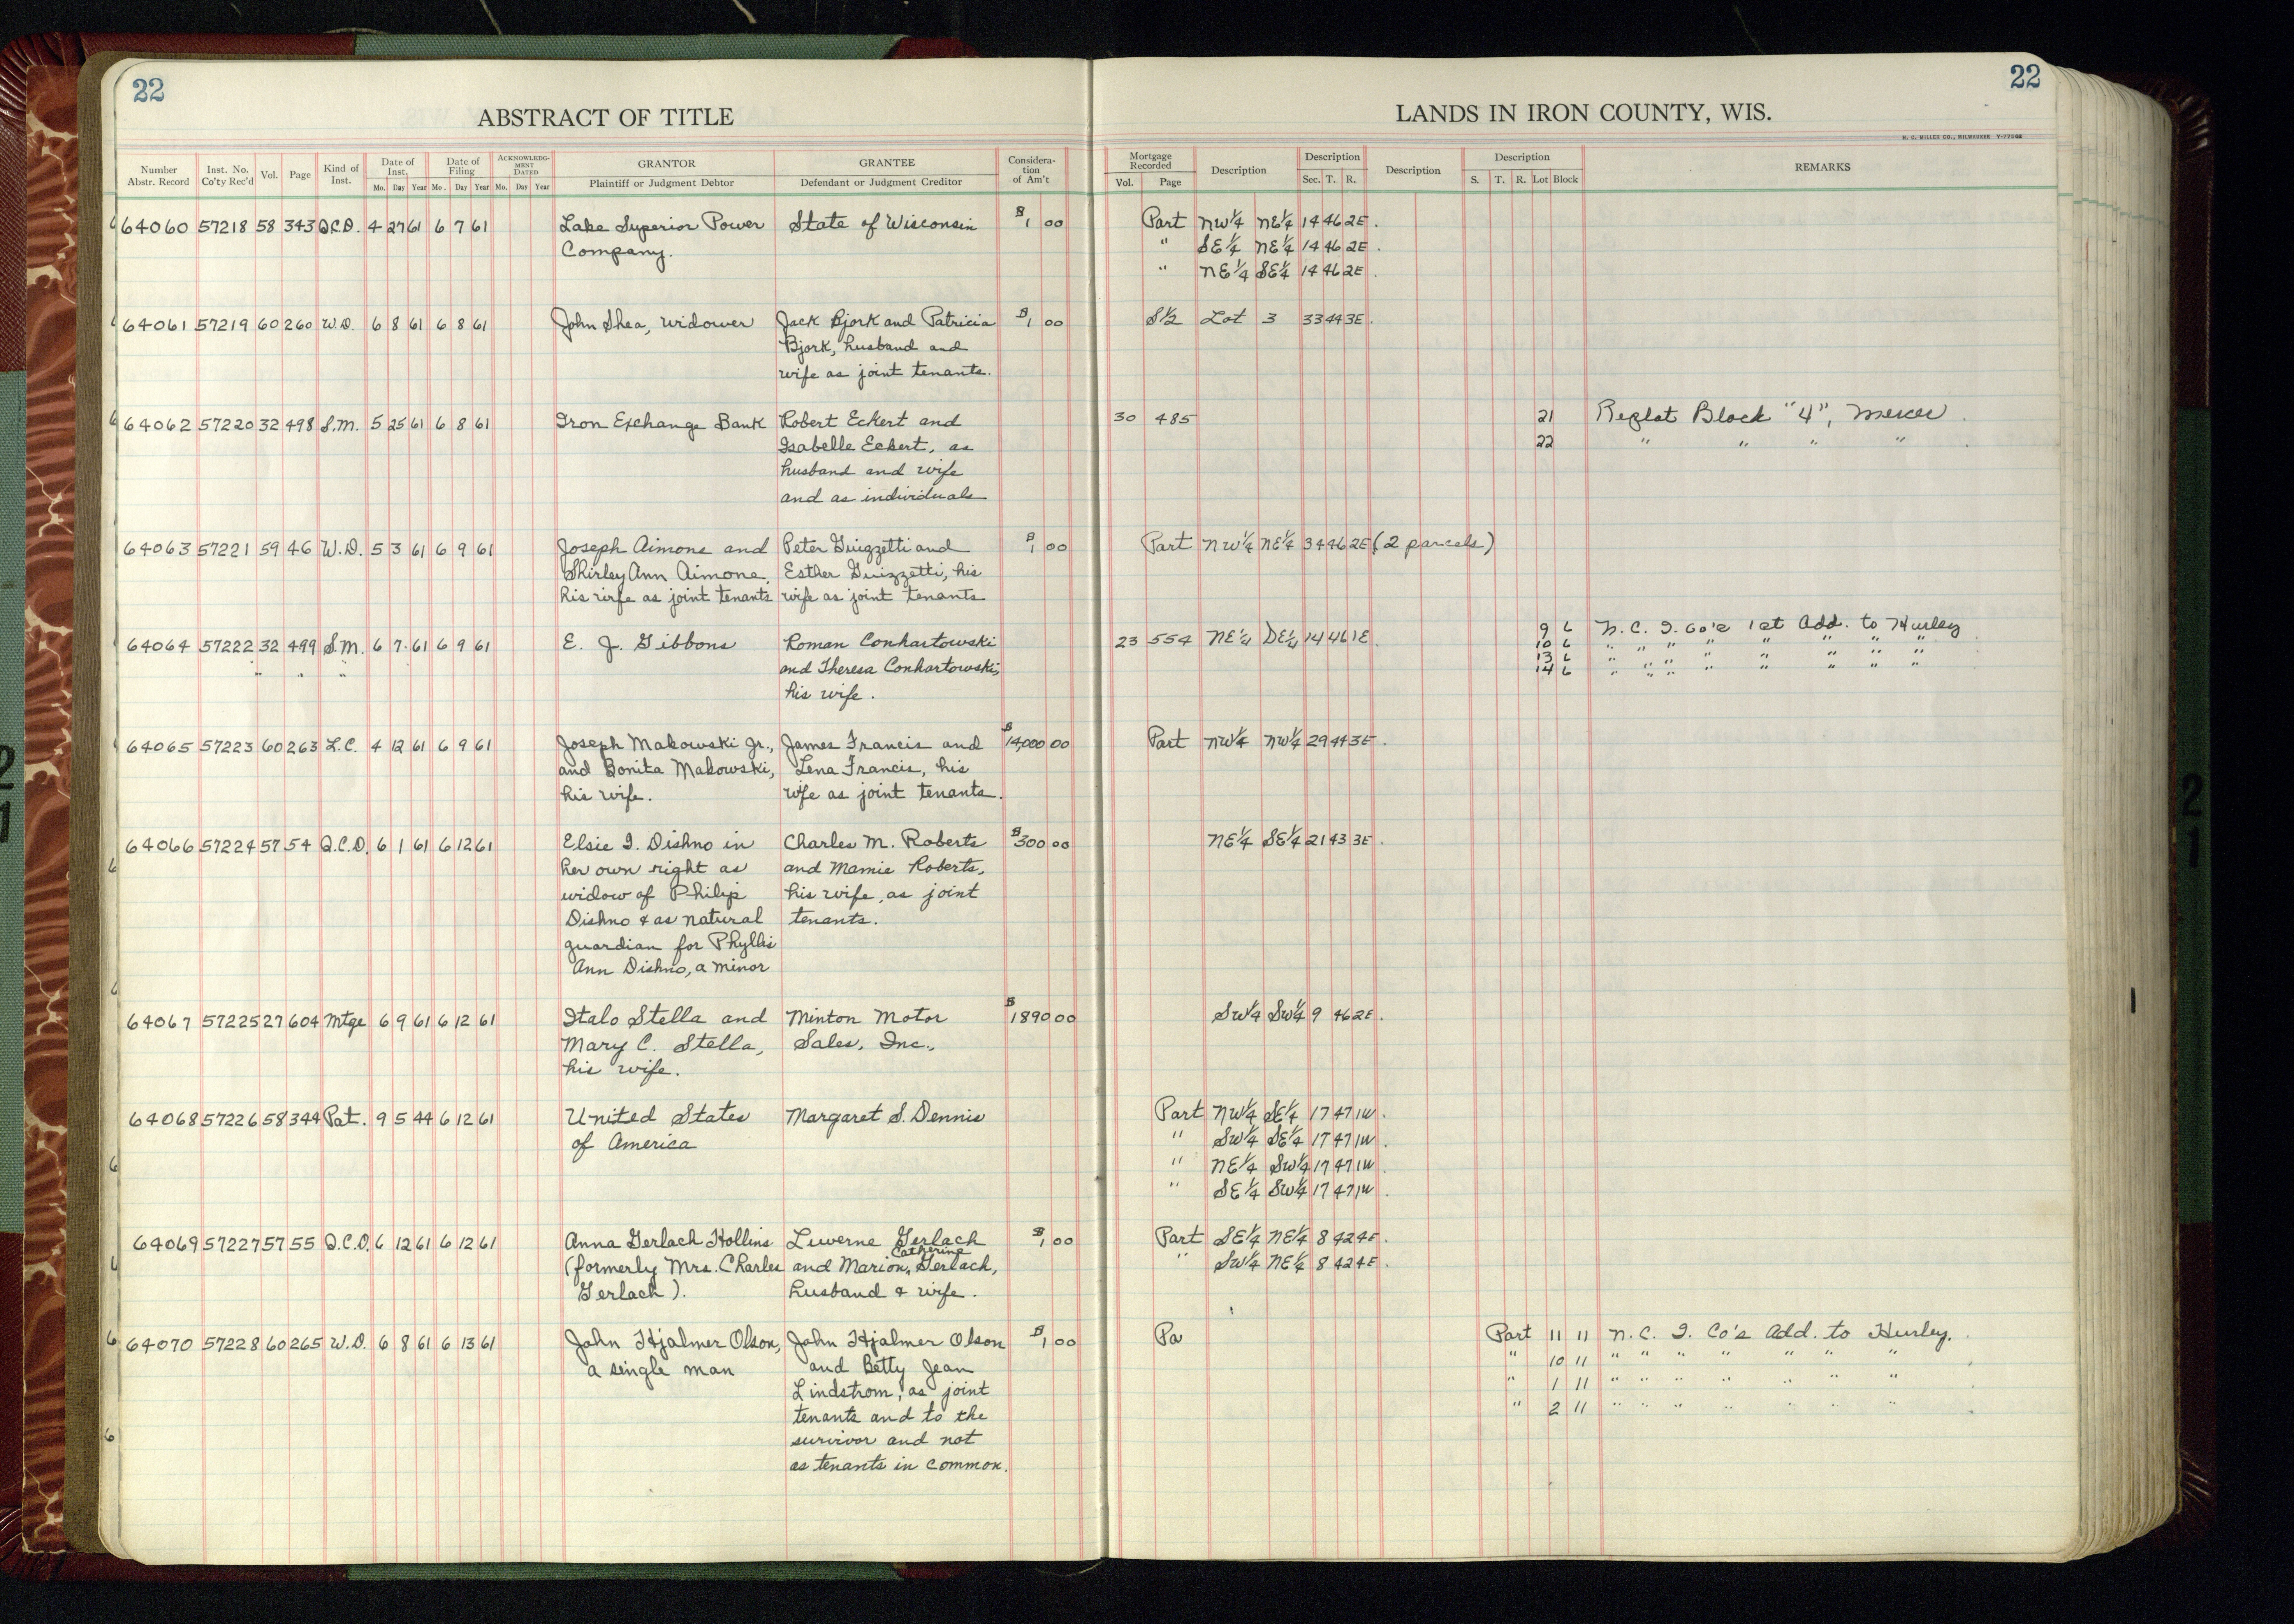 22
22
ABSTRACT OF TITLE
LANDS IN IRON COUNTY, WIS.
H. C. MILLER CO., MILWAUKEE
Number Abstr. Record | Inst. No. Co'ty Rec'd | Vol. | Page | Kind of Inst. | Date of Inst. Mo. Day Year | Date of Filing Mo. Day Year | ACKNOWLEDGMENT DATED Mo. Day Year | GRANTOR Plaintiff or Judgment Debtor | GRANTEE Defendant or Judgment Creditor | Consideration of Am't | Mortgage Recorded Vol. Page | Description | Description Sec. T. R. | Description | Description S. T. R. Lot Block | REMARKS
64060 57218 58 343 Q.C.D. 4 27 61 6 7 61 Lake Superior Power State of Wisconsin $1 00 Part NW¼ NE¼ 14 46 2E.
Company. " SE¼ NE¼ 14 46 2E.
" NE¼ SE¼ 14 46 2E.
64061 57219 60 260 W.D. 6 8 61 6 8 61 John Shea, widower Jack Bjork and Patricia $1 00 S½ Lot 3 33 44 3E.
Bjork, husband and
wife as joint tenants.
64062 57220 32 498 S.M. 5 25 61 6 8 61 Iron Exchange Bank Robert Eckert and 30 485 21 Replat Block "4", Mercer.
Isabelle Eckert, as 22 " " " " .
husband and wife
and as individuals
64063 57221 59 46 W.D. 5 3 61 6 9 61 Joseph Aimone and Peter Guigzetti and $1 00 Part NW¼ NE¼ 34 46 2E (2 parcels)
Shirley Ann Aimone, Esther Guizzetti, his
his wife as joint tenants wife as joint tenants
64064 57222 32 499 S.M. 6 7 61 6 9 61 E. J. Gibbons Roman Conhartowski 23 554 NE¼ DE¼ 14 46 1E. 9 6 N. C. I. Co's 1st Add. to Hurley
10 6 " " " " " " " "
" " " and Theresa Conhartowski, 13 6 " " " " " " " "
14 6 " " " " " " " "
his wife.
64065 57223 60 263 L.C. 4 12 61 6 9 61 Joseph Makowski Jr., James Francis and $14,000 00 Part NW¼ NW¼ 29 44 3E.
and Bonita Makowski, Lena Francis, his
his wife. wife as joint tenants.
64066 57224 57 54 Q.C.D. 6 1 61 6 12 61 Elsie I. Dishno in Charles M. Roberts $300 00 NE¼ SE¼ 21 43 3E.
her own right as and Mamie Roberts,
widow of Philip his wife, as joint
Dishno & as natural tenants.
guardian for Phyllis
Ann Dishno, a minor
64067 57225 27 604 Mtge 6 9 61 6 12 61 Italo Stella and Minton Motor $1890 00 SW¼ SW¼ 9 46 2E.
Mary C. Stella, Sales, Inc.,
his wife.
64068 57226 58 344 Pat. 9 5 44 6 12 61 United States Margaret S. Dennis Part NW¼ SE¼ 17 47 1W.
of America " SW¼ SE¼ 17 47 1W.
" NE¼ SW¼ 17 47 1W.
" SE¼ SW¼ 17 47 1W.
64069 57227 57 55 Q.C.D. 6 12 61 6 12 61 Anna Gerlach Hollins Luverne Gerlach $1 00 Part SE¼ NE¼ 8 42 4E.
(formerly Mrs. Charles and Marion Catherine Gerlach, " SW¼ NE¼ 8 42 4E.
Gerlach). husband & wife.
64070 57228 60 265 W.D. 6 8 61 6 13 61 John Hjalmer Olson, John Hjalmer Olson $1 00 Pa Part 11 11 N. C. I. Co's Add. to Hurley.
a single man and Betty Jean " 10 11 " " " " " " "
Lindstrom, as joint " 1 11 " " " " " " "
tenants and to the " 2 11 " " " " " " "
survivor and not
as tenants in common.